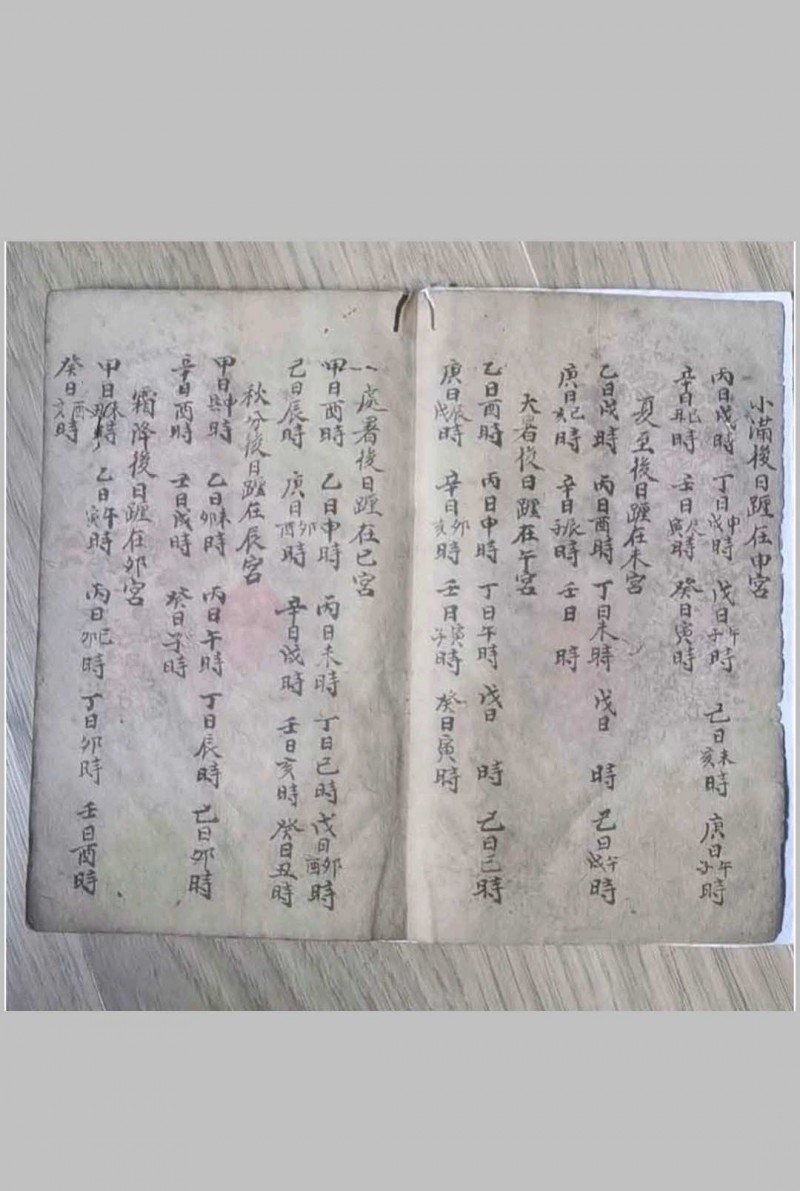 小滿後日躔在申宮
丙日戌時 丁日申戌時 戊日午子時 己日未亥時 庚日午子時
辛日巳丑時 壬日辰寅時 癸日寅時
夏至後日躔在未宮
乙日戌時 丙日酉時 丁日未時 戊日 時 己日午戌時
庚日巳亥時 辛日辰子時 壬日 時
大暑後日躔在午宮
乙日酉時 丙日申時 丁日午時 戊日 時 己日巳時
庚日辰戌時 辛日卯亥時 壬日寅子時 癸日寅時
一處暑後日躔在巳宮
甲日酉時 乙日申時 丙日未時 丁日巳時 戊日卯酉時
己日辰時 庚日卯酉時 辛日戌時 壬日亥時 癸日丑時
秋分後日躔在辰宮
甲日申時 乙日未卯時 丙日午時 丁日辰時 己日卯時
辛日酉時 壬日戌時 癸日子時
霜降後日躔在卯宮
甲日未時 乙日午寅時 丙日巳卯時 丁日卯時 壬日酉時
癸日酉亥時